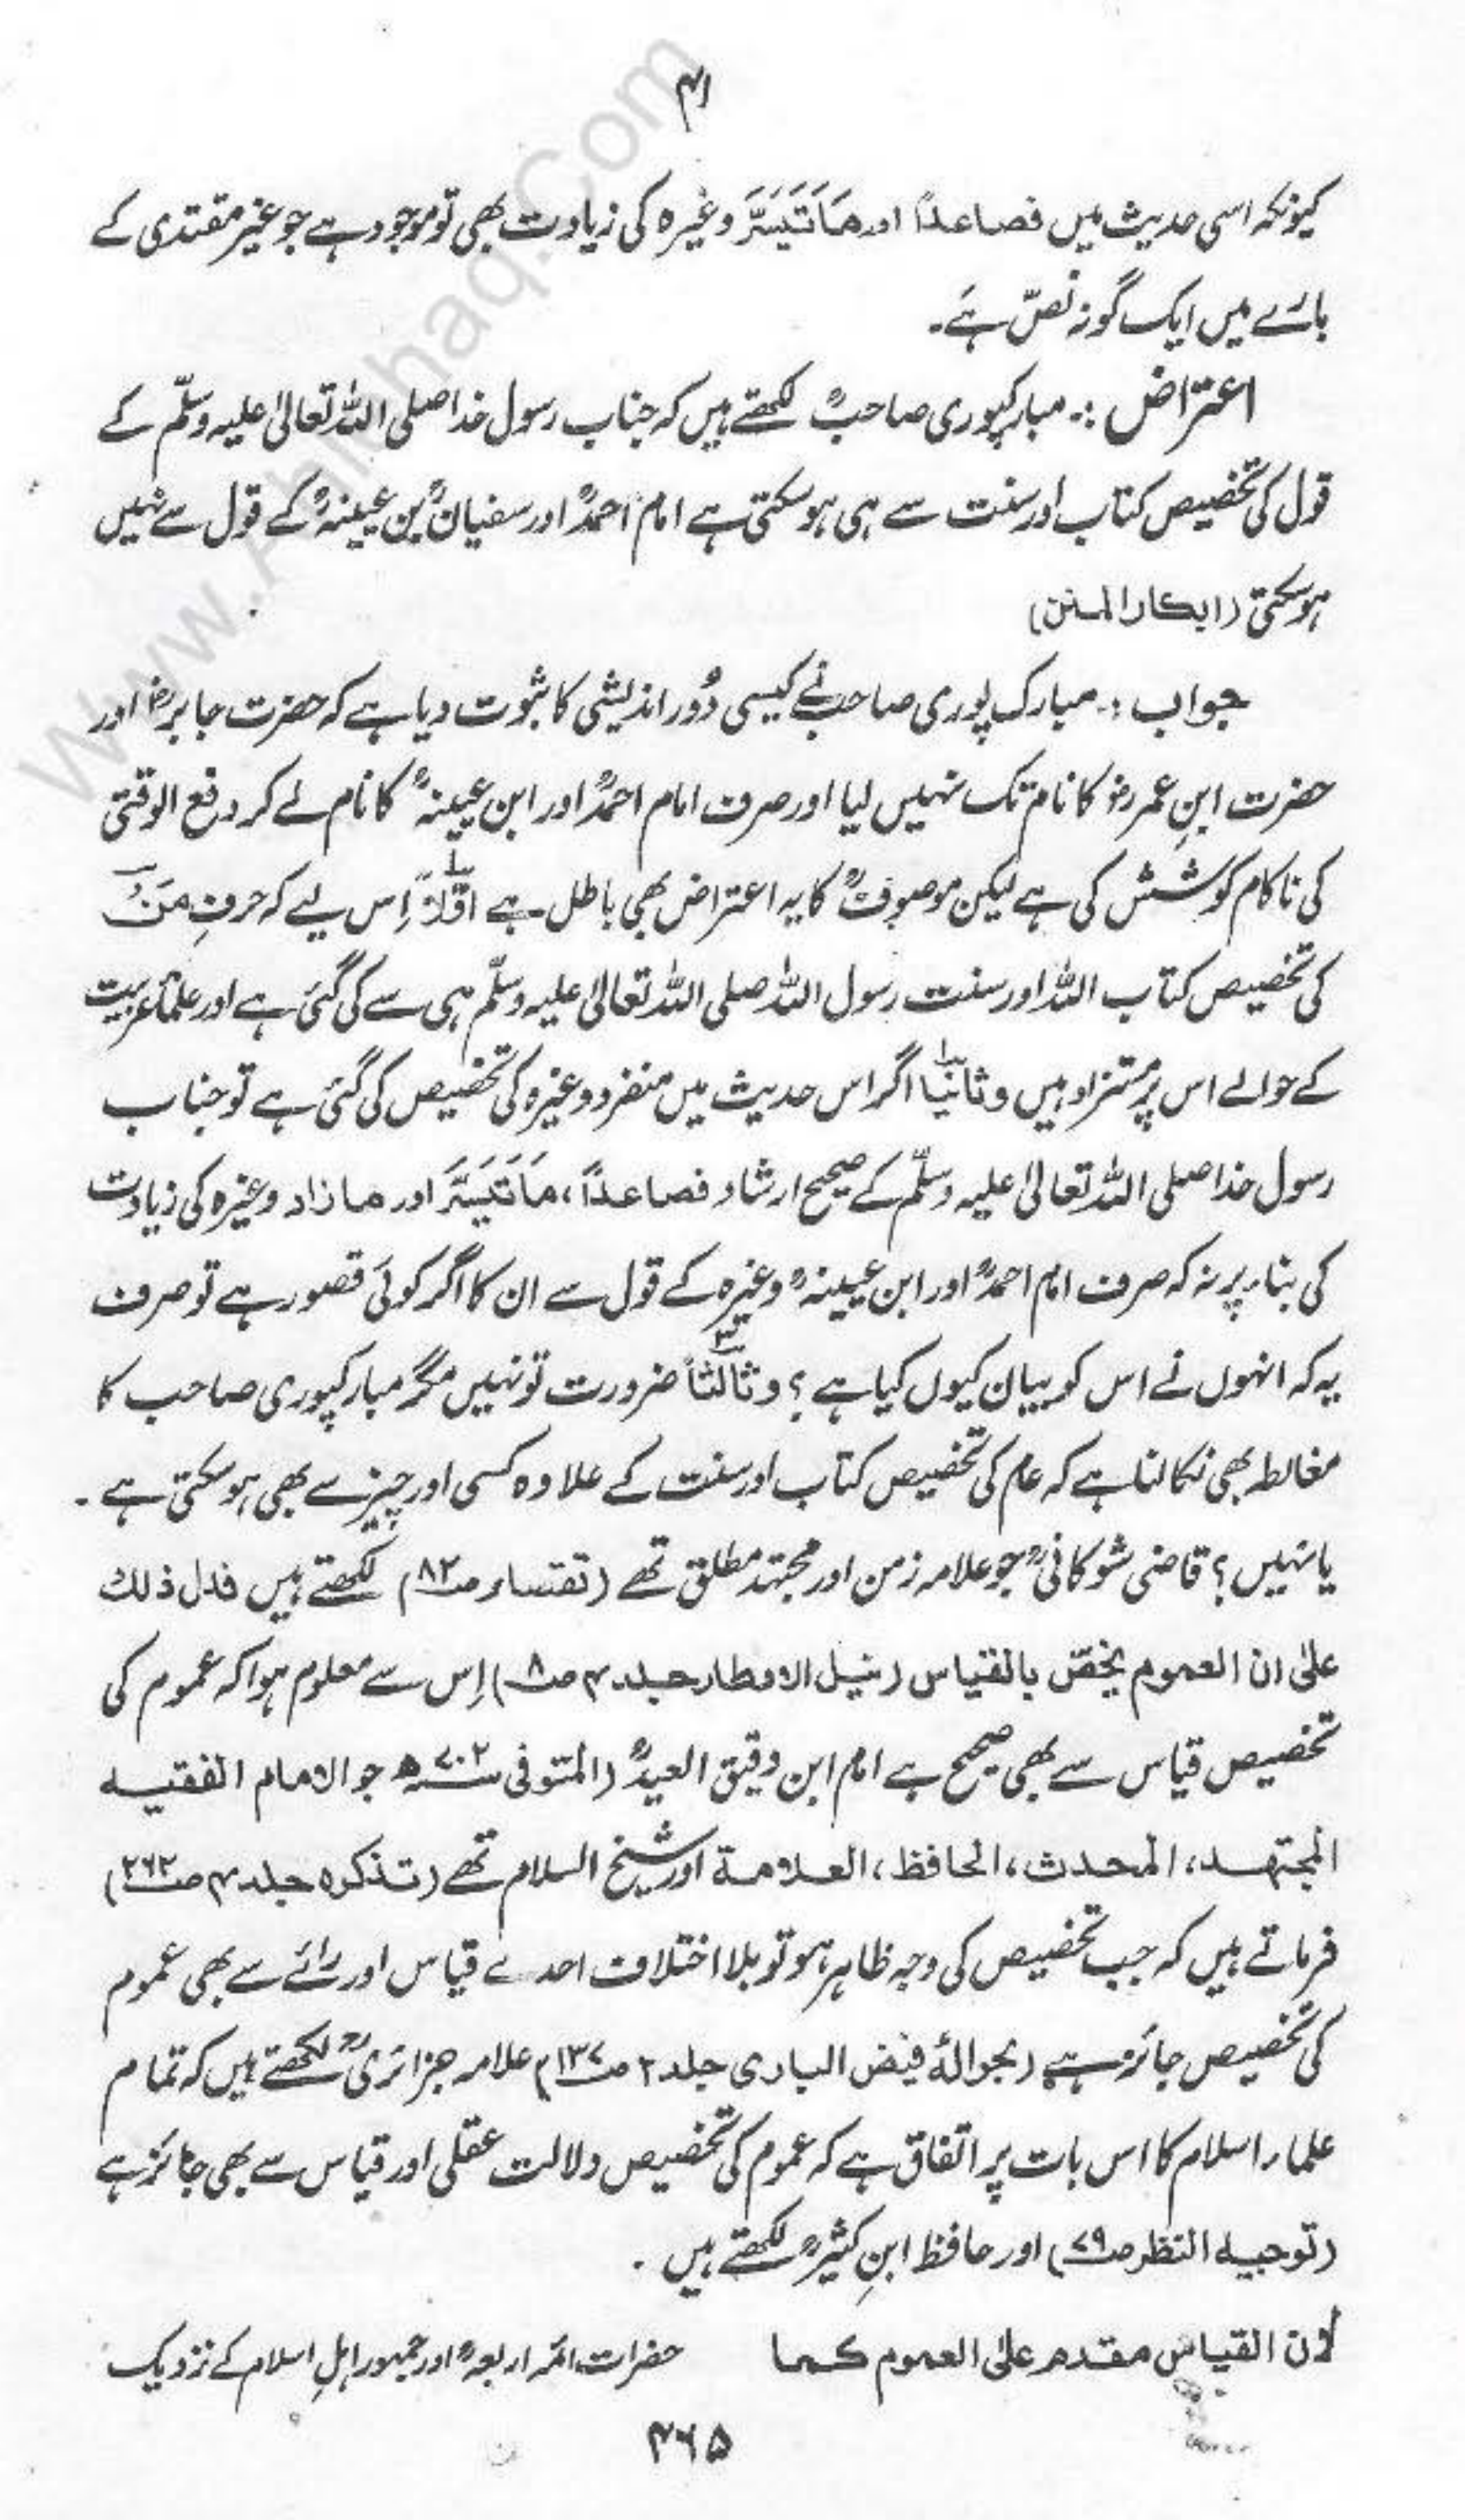 ۴۱
کیونکہ اسی حدیث میں فصاعدًا اور مَاتَیَسَّرَ وغیرہ کی زیادت بھی تو موجود ہے جو غیر مقتدی کے
بارے میں ایک گونہ نصّ ہے۔
اعتراض :۔ مبارکپوری صاحبؒ لکھتے ہیں کہ جناب رسول خدا صلی اللہ تعالیٰ علیہ وسلّم کے
قول کی تخصیص کتاب اور سنت سے ہی ہو سکتی ہے امام احمدؒ اور سفیانؒ بن عیینہؒ کے قول سے نہیں
ہو سکتی (ابکار المنن)
جواب :۔ مبارک پوری صاحبؒ نے کیسی دُور اندیشی کا ثبوت دیا ہے کہ حضرت جابرؓ اور
حضرت ابنِ عمرؓ کا نام تک نہیں لیا اور صرف امام احمدؒ اور ابن عیینہؒ کا نام لے کر دفع الوقتی
کی ناکام کوشش کی ہے لیکن موصوفؒ کا یہ اعتراض بھی باطل ہے اوّلاً اِس لیے کہ حرفِ مَنْ
کی تخصیص کتاب اللہ اور سنت رسول اللہ صلی اللہ تعالیٰ علیہ وسلّم ہی سے کی گئی ہے اور علماءِ عربیت
کے حوالے اس پر مستزاد ہیں و ثانیاً اگر اس حدیث میں منفرد وغیرہ کی تخصیص کی گئی ہے تو جناب
رسول خدا صلی اللہ تعالیٰ علیہ وسلّم کے صحیح ارشاد فصاعدًا، مَاتَیَسَّرَ اور ما زاد وغیرہ کی زیادت
کی بناء پر نہ کہ صرف امام احمدؒ اور ابن عیینہؒ وغیرہ کے قول سے ان کا اگر کوئی قصور ہے تو صرف
یہ کہ انہوں نے اس کو بیان کیوں کیا ہے ؟ و ثالثاً ضرورت تو نہیں مگر مبارکپوری صاحب کا
مغالطہ بھی نکالنا ہے کہ عام کی تخصیص کتاب اور سنت کے علاوہ کسی اور چیز سے بھی ہو سکتی ہے ۔
یا نہیں ؟ قاضی شوکانیؒ جو علامہ زمن اور مجتہد مطلق تھے (تقصار ص۸۲) لکھتے ہیں فدل ذلك
علیٰ ان العموم یخصّ بالقیاس (نیل الاوطار جلد ۴ ص۸) اِس سے معلوم ہوا کہ عموم کی
تخصیص قیاس سے بھی صحیح ہے امام ابن دقیق العیدؒ (المتوفی ۷۰۲ھ جو الامام الفقیہ
المجتہد، المحدث، الحافظ، العلامة اور شیخ السلام تھے (تذکرہ جلد ۴ ص۲۶۲)
فرماتے ہیں کہ جب تخصیص کی وجہ ظاہر ہو تو بلا اختلاف احدے قیاس اور رائے سے بھی عموم
کی تخصیص جائز ہے (بحوالۂ فیض الباری جلد ۲ ص۱۳۷) علامہ جزائریؒ لکھتے ہیں کہ تمام
علماء اسلام کا اس بات پر اتفاق ہے کہ عموم کی تخصیص دلالت عقلی اور قیاس سے بھی جائز ہے
(توجیہ النظر ص۷۹) اور حافظ ابنِ کثیرؒ لکھتے ہیں ۔
لان القیاس مقدم علی العموم کما حضرات ائمہ اربعہؒ اور جمہور اہلِ اسلام کے نزدیک
۴۶۵
www.Ahlehaq.Com